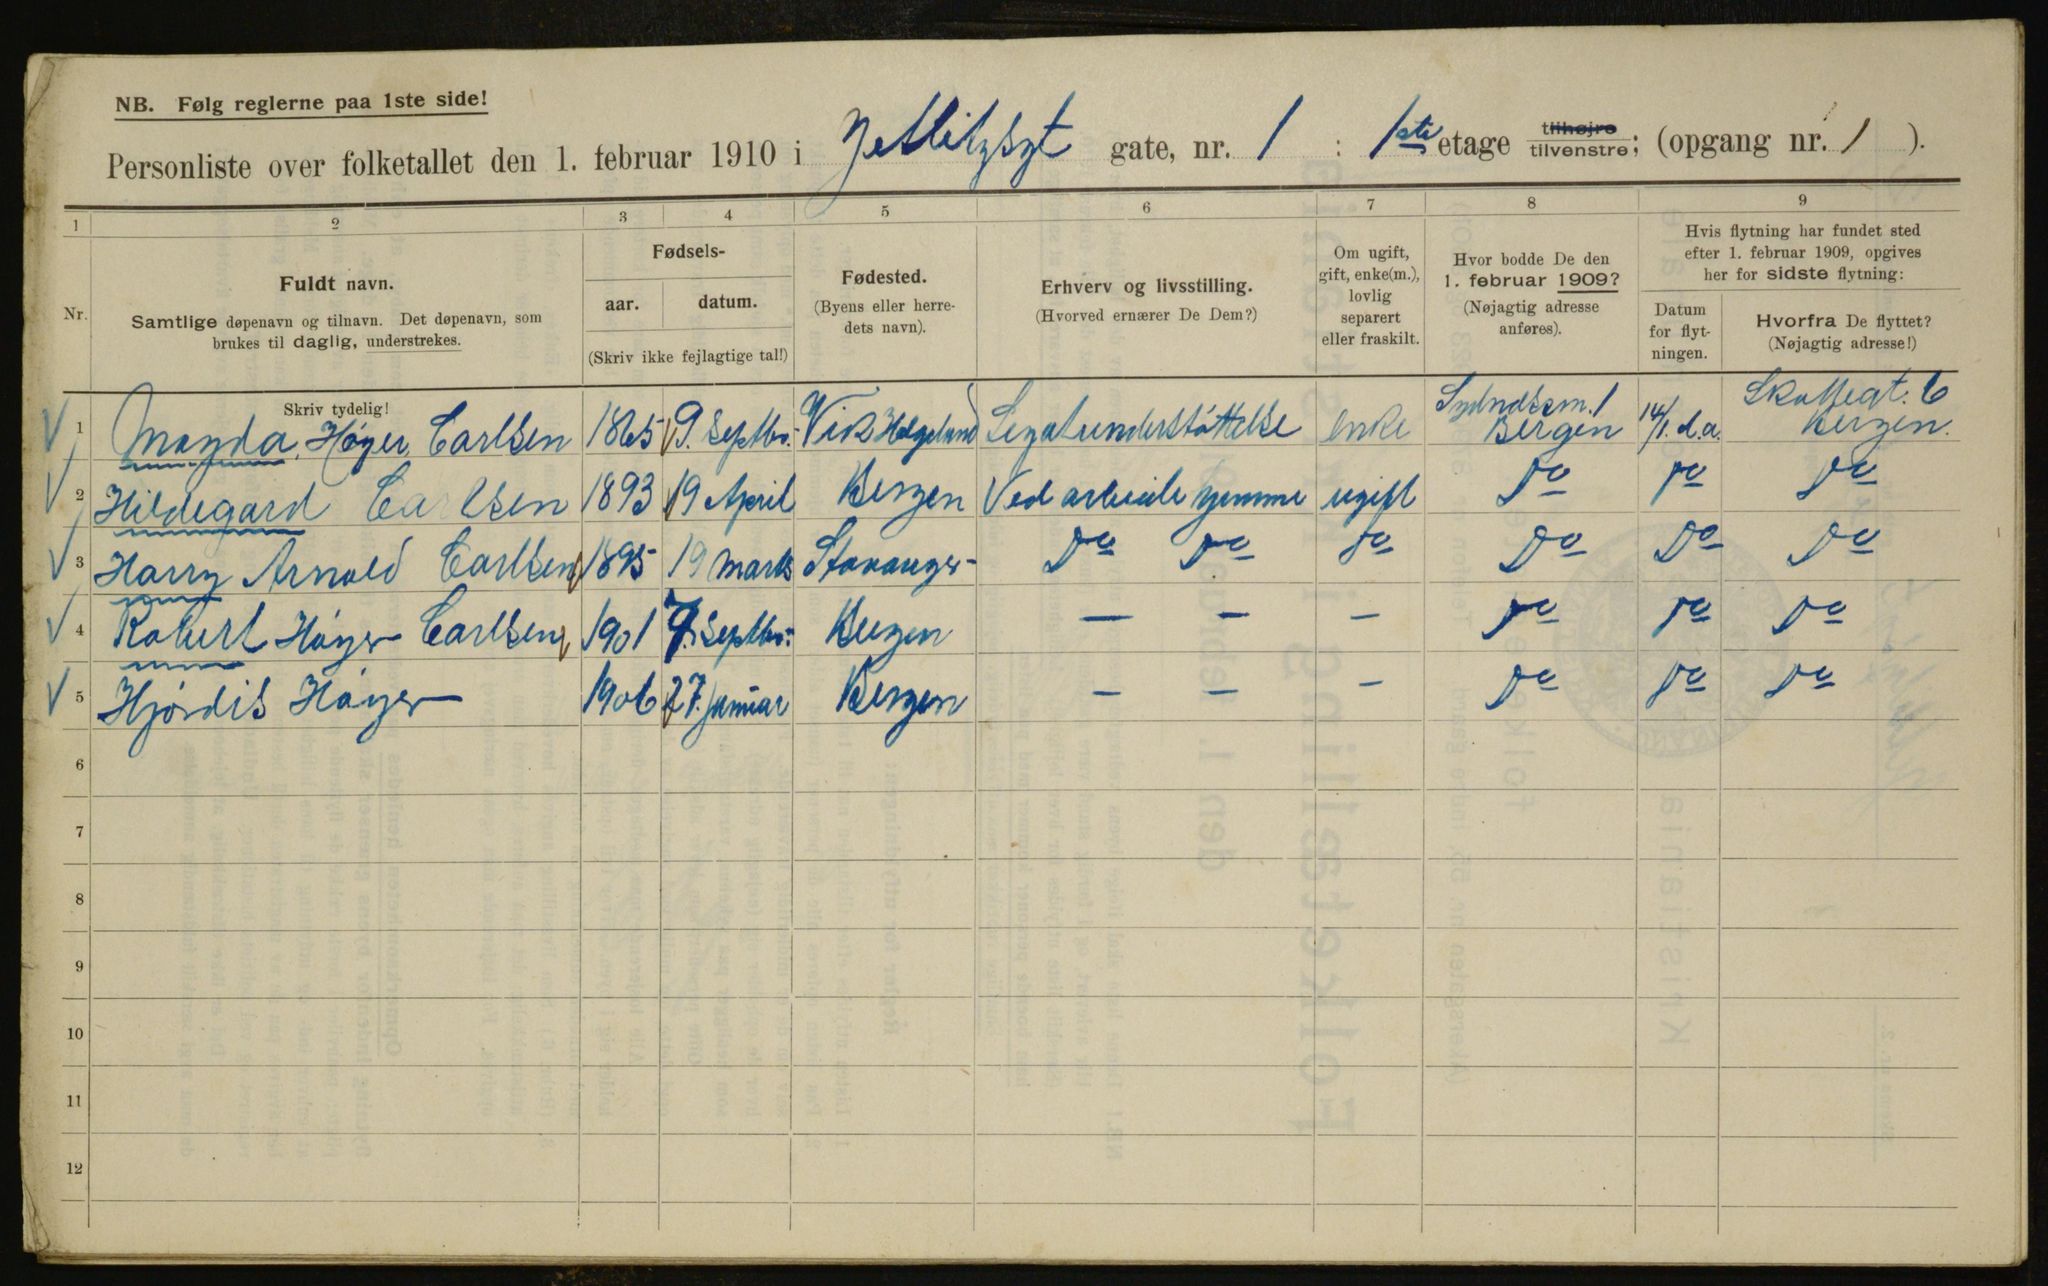 NB. Følg reglerne paa 1ste side!
Personliste over folketallet den 1. februar 1910 i Jetlitzsgt gate, nr. 1 : 1ste etage tilhøjre tilvenstre; (opgang nr. 1 ).
1 2 3 4 5 6 7 8 9
Nr.
Fuldt navn.
Samtlige døpenavn og tilnavn. Det døpenavn, som
brukes til daglig, understrekes.
Fødsels-
aar. datum.
(Skriv ikke fejlagtige tal!)
Fødested.
(Byens eller herre-
dets navn).
Erhverv og livsstilling.
(Hvorved ernærer De Dem?)
Om ugift,
gift, enke(m.),
lovlig
separert
eller fraskilt.
Hvor bodde De den
1. februar 1909?
(Nøjagtig adresse
anføres).
Hvis flytning har fundet sted
efter 1. februar 1909, opgives
her for sidste flytning:
Datum
for flyt-
ningen.
Hvorfra De flyttet?
(Nøjagtig adresse!)
Skriv tydelig!
1 Magda Høyer Carlsen 1865 9. Septbr. Vik Helgeland Legatunderstøttelse enke Sydndssm. 1 Bergen 14/1. d.a. Skottegt. 6 Bergen.
2 Hildegard Carlsen 1893 19 April Bergen Ved arbeide hjemme ugift Do Do Do
3 Harry Arnold Carlsen 1895 19 Marts Stavanger Do Do Do Do Do Do
4 Robert Høyer Carlsen 1901 7. Septbr. Bergen — — — Do Do Do
5 Hjørdis Høyer 1906 27. Januar Bergen — — — Do Do Do
6
7
8
9
10
11
12